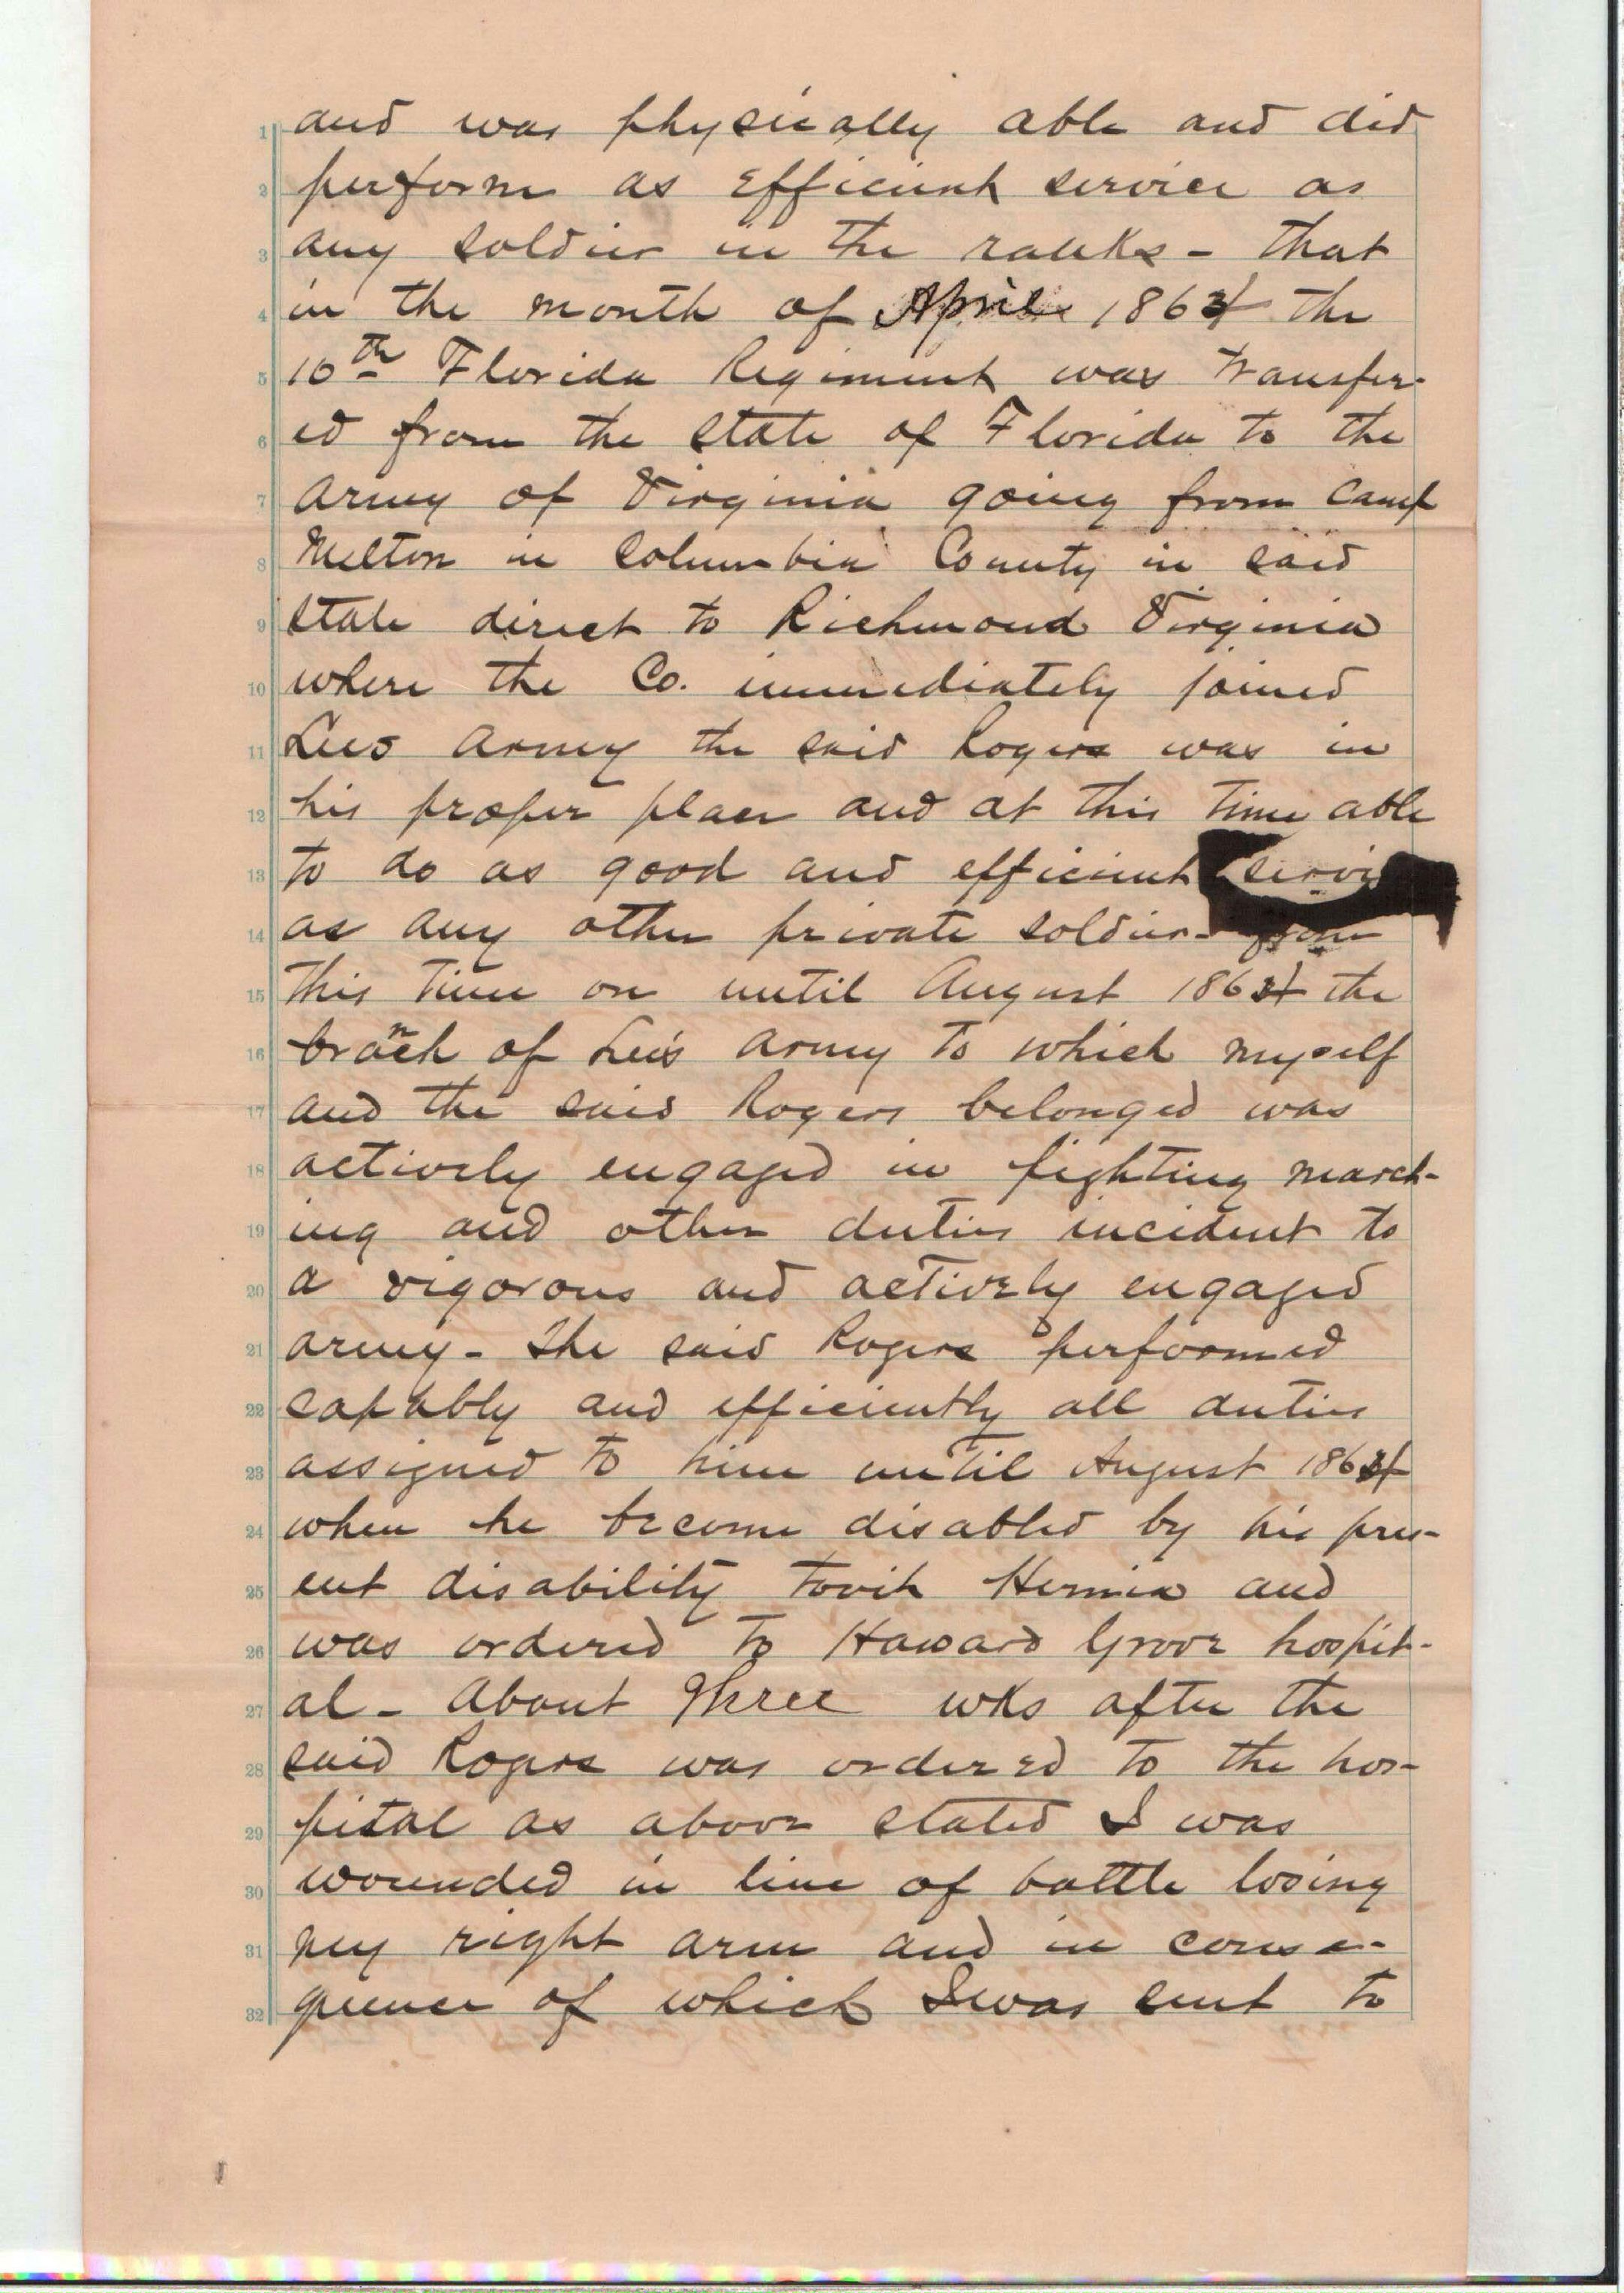 and was physically able and did
perform as efficient service as
any soldier in the ranks - that
in the month of April 1864 the
10th Florida Regiment was transfer-
ed from the state of Florida to the
army of Virginia going from Camp
Milton in Columbia County in said
state direct to Richmond Virginia
where the Co. immediately joined
Lees army the said Rogers was in
his proper place and at this time able
to do as good and efficient servi
as any other private soldier - from
this time on until August 1864 the
branch of Lee's army to which myself
and the said Rogers belonged was
actively engaged in fighting march-
ing and other duties incident to
a vigorous and actively engaged
army - The said Rogers performed
capably and efficiently all duties
assigned to him until August 1864
when he become disabled by his pres-
ent disability towit Hernia and
was ordered to Haward Grove hospit-
al - About Three wks after the
said Rogers was ordered to the hos-
pital as above stated I was
wounded in line of battle losing
my right arm and in conse-
quence of which I was sent to